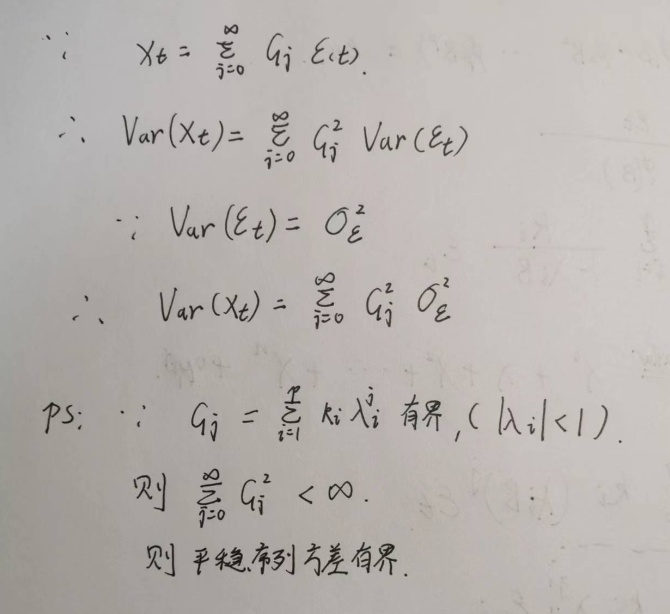 ∵ X_t = ∑_{j=0}^{∞} G_j ε(t).
∴ Var(X_t) = ∑_{j=0}^{∞} G_j^2 Var(ε_t)
∵ Var(ε_t) = σ_ε^2
∴ Var(X_t) = ∑_{j=0}^{∞} G_j^2 σ_ε^2
PS: ∵ G_j = ∑_{i=1}^{p} k_i λ_i^j 有界, (|λ_i|<1).
则 ∑_{j=0}^{∞} G_j^2 < ∞.
则 平稳序列方差有界.